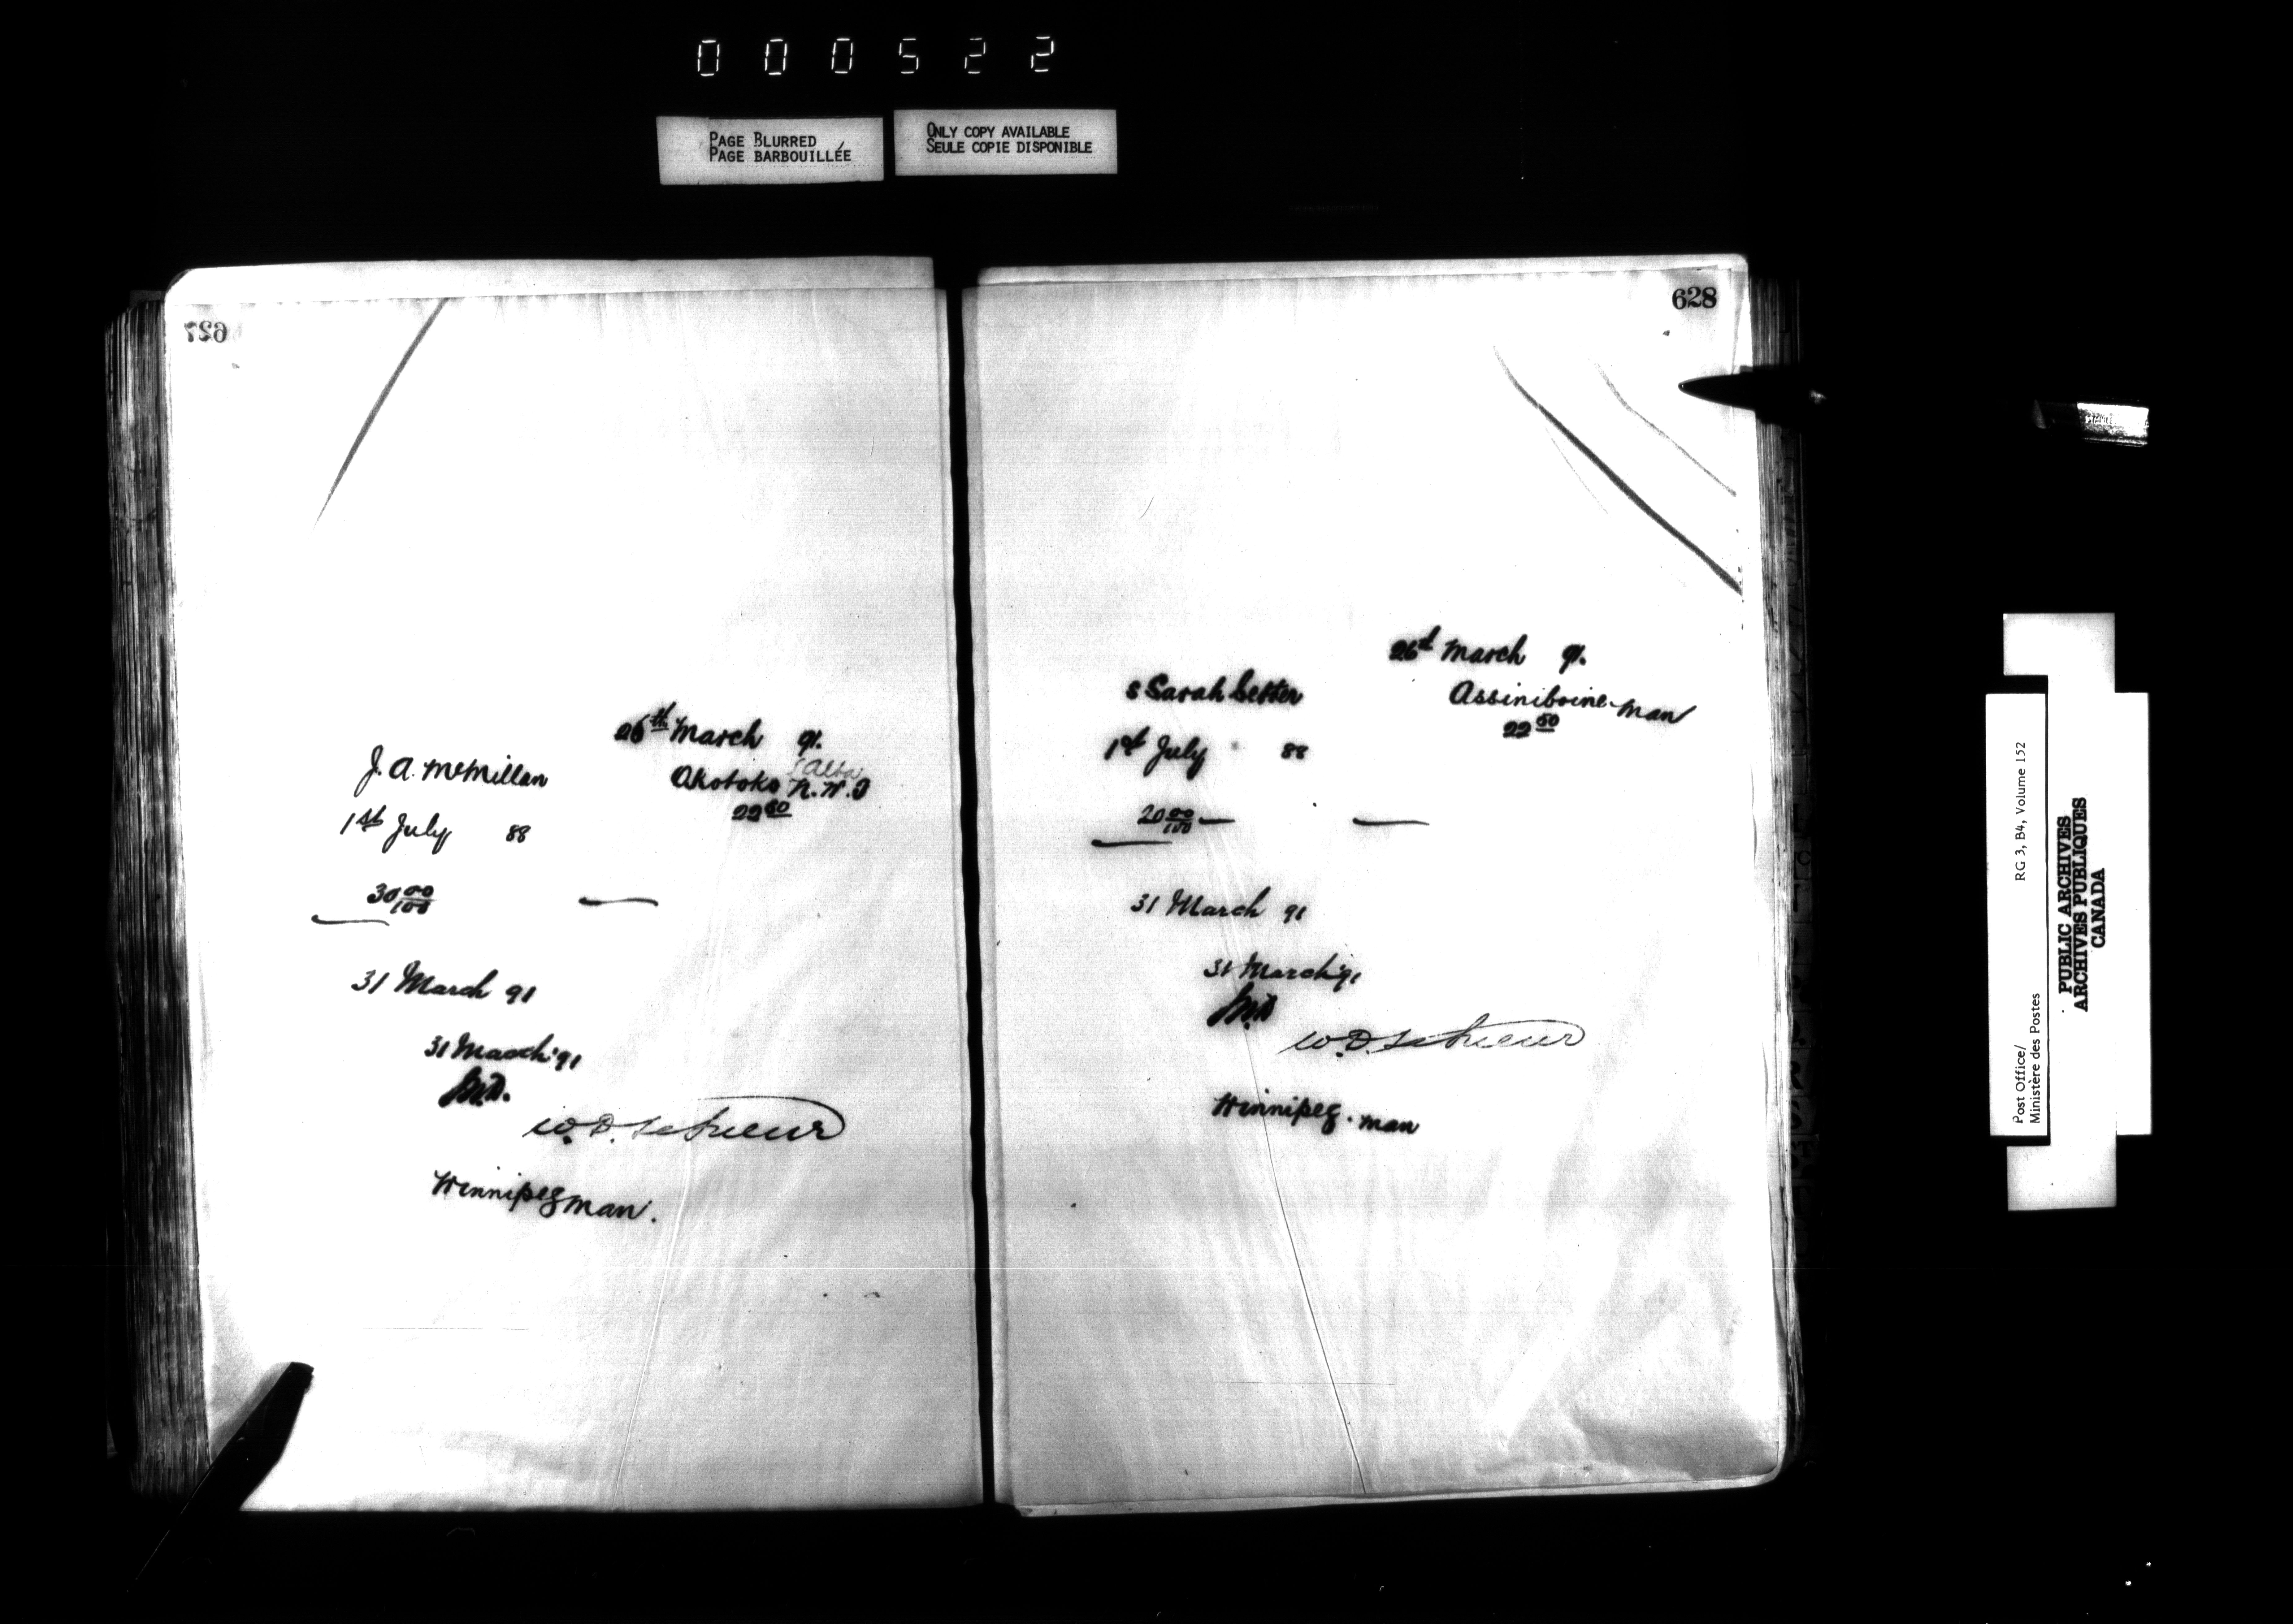 000522
PAGE BLURRED
PAGE BARBOUILLÉE
ONLY COPY AVAILABLE
SEULE COPIE DISPONIBLE
627
26th March 91.
J. A. McMillan
(Alba)
Okotoks N.W.T
22 50
1st July 88
30 00/100
31 March 91
31 March '91
W.D.
Winnipeg Man.
628
26th March 91.
Sarah Setter
Assiniboine Man
22 50
1st July 88
20 00/100
31 March 91
31 March '91
W.D.
Winnipeg. Man
Post Office/
Ministère des Postes
RG 3, B4, Volume 152
PUBLIC ARCHIVES
ARCHIVES PUBLIQUES
CANADA